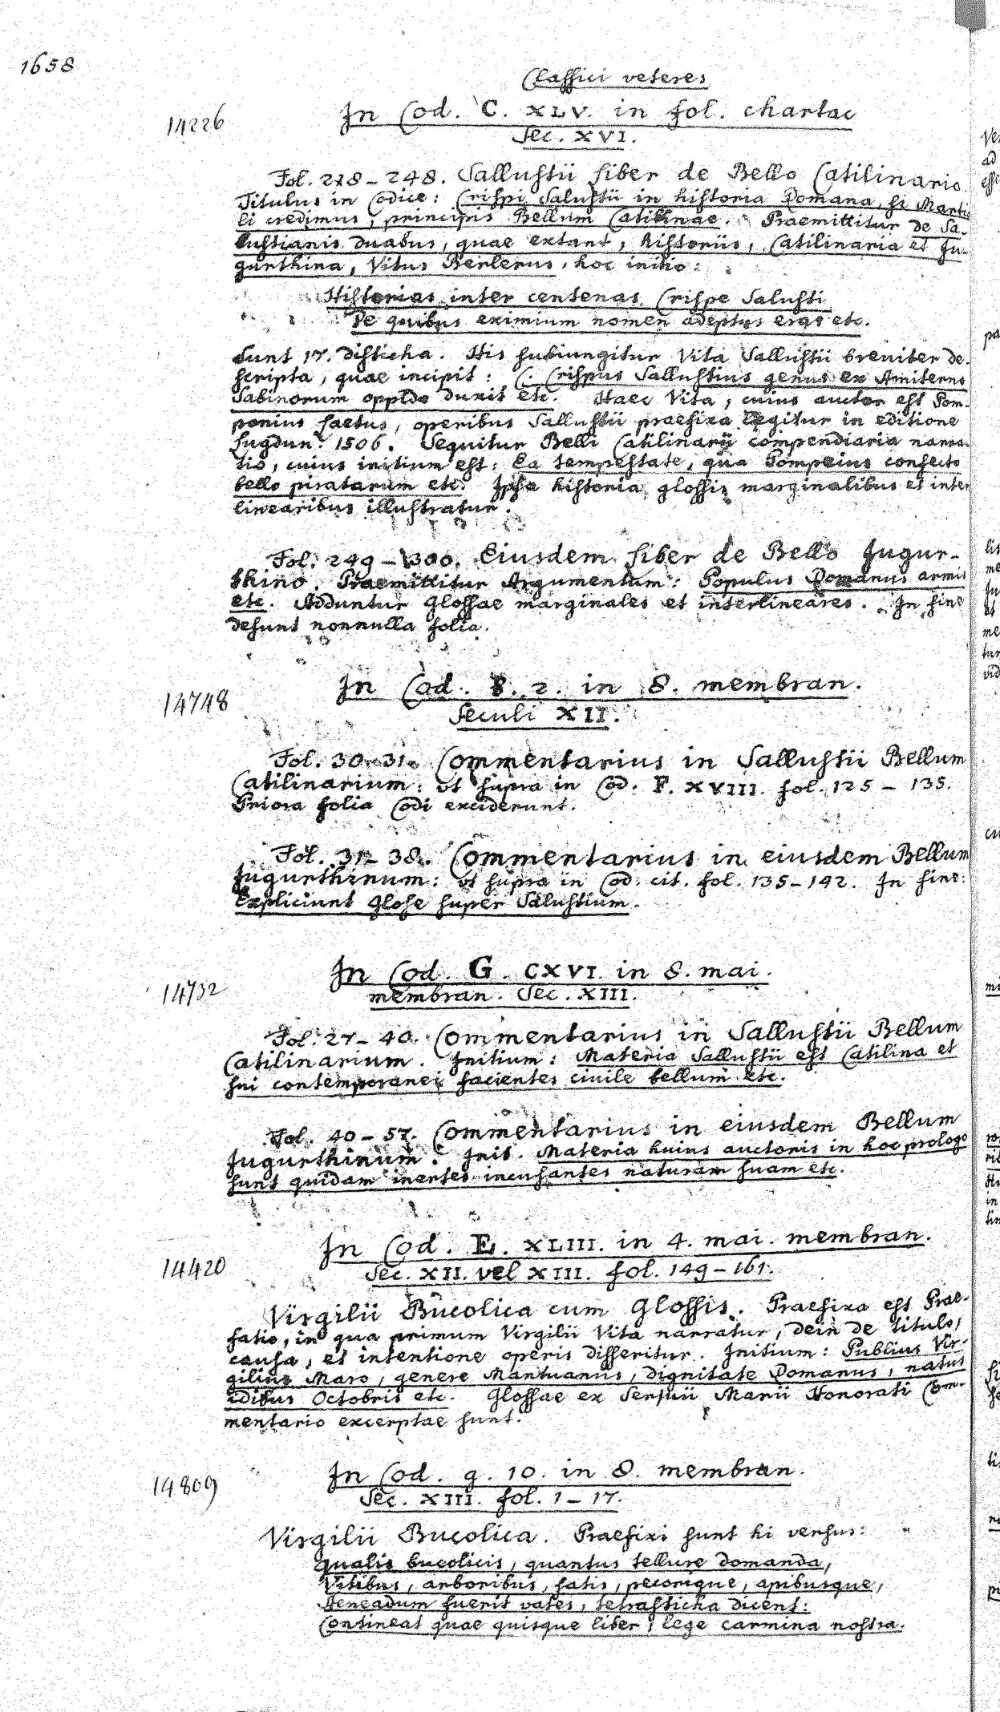 1658
Classici veteres
14226
In Cod. C. XLV. in fol. chartac
Sec. XVI.
Fol. 218 – 248. Sallustii liber de Bello Catilinario.
Titulus in Codice: Crispi Salustii in historia Romana, si Marti-
li credimus, principis Bellum Catilinae. Praemittitur de Sa-
lustianis duabus, quae extant, historiis, Catilinaria et Ju-
gurthina, Vitus Berlerus, hoc initio:
Historias inter centenas Crispe Salusti
De quibus eximium nomen adeptus etc.
Sunt 17. disticha. His subiungitur Vita Sallustii breviter de-
scripta, quae incipit: C. Crispus Sallustius genus ex Amiterno
Sabinorum oppido duxit etc. Haec Vita, cuius auctor est Pom-
ponius Laetus, operibus Sallustii praefixa legitur in editione
Lugdun. 1506. Sequitur Belli Catilinarij compendiaria narra-
tio, cuius initium est: Ea tempestate, qua Pompeius confecto
bello piratarum etc. Ipsa historia glossis marginalibus et inter-
linearibus illustratur.
Fol. 249 – 300. Eiusdem liber de Bello Jugur-
thino. Praemittitur Argumentum: Populus Romanus armis
etc. Adduntur Glossae marginales et interlineares. In fine
desunt nonnulla folia.
14748
In Cod. 2. in 8. membran.
Seculi XII.
Fol. 30–31. Commentarius in Sallustii Bellum
Catilinarium: ut supra in Cod. F. XVIII. fol. 125 – 135.
Priora folia Codi exciderunt.
Fol. 31–38. Commentarius in eiusdem Bellum
Jugurthinum: ut supra in Cod. cit. fol. 135–142. In fine:
Expliciunt Glose super Salustium.
14732
In Cod. G. CXVI. in 8. mai.
membran. Sec. XIII.
Fol. 27 – 40. Commentarius in Sallustii Bellum
Catilinarium. Initium: Materia Sallustii est Catilina et
sui contemporanei facientes civile bellum etc.
Fol. 40 – 57. Commentarius in eiusdem Bellum
Jugurthinum. Init. Materia huius auctoris in hoc prologo
sunt quidam inertes incusantes naturam suam etc.
14420
In Cod. E. XLIII. in 4. mai. membran.
Sec. XII. vel XIII. fol. 149–161.
Virgilii Bucolica cum Glossis. Praefixa est Prae-
fatio, in qua primum Virgilii Vita narratur, dein de titulo,
causa, et intentione operis disseritur. Initium: Publius Vir-
gilius Maro, genere Mantuanus, dignitate Romanus, natus
idibus Octobris etc. Glossae ex Servii Marii Honorati Com-
mentario excerptae sunt.
14809
In Cod. g. 10. in 8. membran.
Sec. XIII. fol. 1–17.
Virgilii Bucolica. Praefixi sunt hi versus:
Qualis bucolicis, quantus tellure domanda,
Vitibus, arboribus, satis, pecorique, apibusque,
Aeneadum fuerit vates, tetrasticha dicent:
Contineat quae quisque liber, lege carmina nostra.